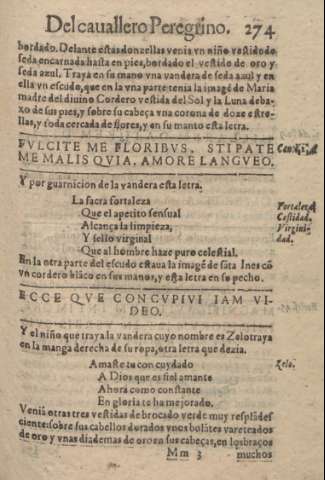 Del cauallero Peregrino. 274
bordado. Delante estas donzellas venia vn niño vestido de
seda encarnada hasta en pies, bordado el vestido de oro y
seda azul. Traya en su mano vna vandera de seda azul y en
ella vn escudo, que en la vna parte tenia la imagē de Maria
madre del diuino Cordero vestida del Sol y la Luna deba-
xo de sus pies, y sobre su cabeça vna corona de doze estre-
llas, y toda cercada de flores, y en su manto esta letra.
FVLCITE ME FLORIBVS, STIPATE
ME MALIS QVIA, AMORE LANGVEO.
Y por guarnicion de la vandera esta letra.
La sacra fortaleza
Que el apetito sensual
Alcança la limpieza,
Y sello virginal
Que al hombre haze puro celestial.
Fortaleza
Castidad.
Virgini-
dad.
En la otra parte del escudo estaua la imagē de sāta Ines cō
vn cordero blāco en sus manos, y esta letra en su pecho.
ECCE QVE CONCVPIVI IAM VI-
DEO.
Y el niño que traya la vandera cuyo nombre es Zelo traya
en la manga derecha de su ropa, otra letra que dezia.
Amaste tu con cuydado
A Dios que es fiel amante
Ahora como constante
En gloria te ha mejorado.
Zelo.
Venia otras tres vestidas de brocado verde muy resplāde
ciente: sobre sus cabellos dorados vnos bolātes vareteados
de oro y vnas diademas de oro en sus cabeças, en los braços
Mm 3 muchos